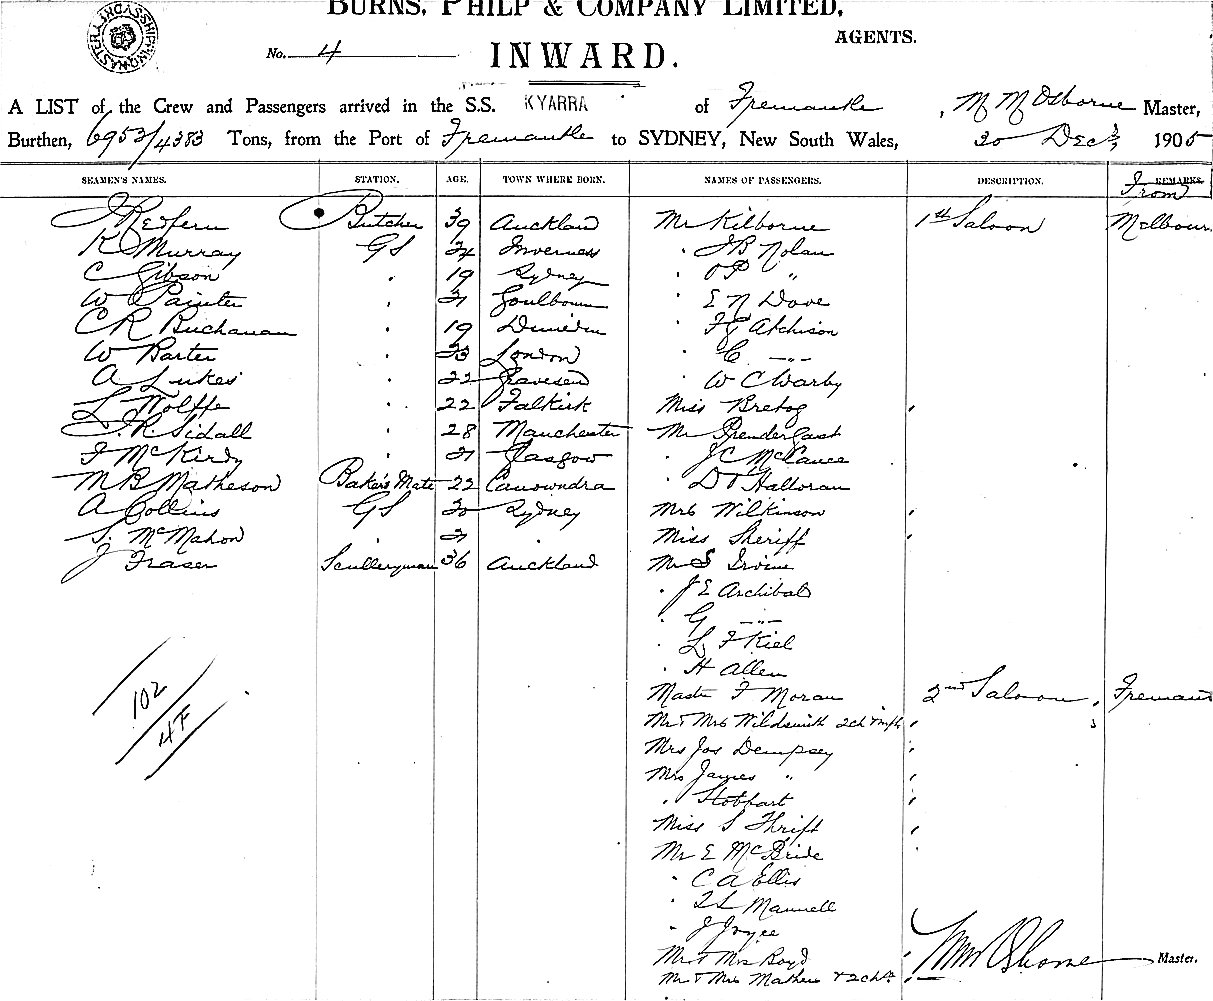 BURNS, PHILP & COMPANY LIMITED,
AGENTS.
No. 4
INWARD.
A LIST of the Crew and Passengers arrived in the S.S. KYARRA of Fremantle, M M Osborne Master,
Burthen, 6953/4383 Tons, from the Port of Fremantle to SYDNEY, New South Wales, 30 Dec 1905
SEAMEN'S NAMES. STATION. AGE. TOWN WHERE BORN. NAMES OF PASSENGERS. DESCRIPTION. From REMARKS.
J Redfern Butcher 39 Auckland Mr Kilborne 1st Saloon Melbour
K Murray GS 24 Inverness " J B Nolan
C Gibson " 19 Sydney " O P "
W Painter " 21 Goulburn " E N Dove
C R Buchanan " 19 Dunedin " F G Atchison
W Barter " 23 London " C "
A Lukes " 22 Gravesend " W C Warby
L Wolffe " 22 Falkirk Miss "
J. R Sidall " 28 Manchester Mr Prendergast
F McKirdy " 21 Glasgow " J C McCance
M B Matheson Bakers Mate 22 Canowndra " D O Halloran
A Collins GS 20 Sydney Mrs Wilkinson "
S. McMahon " 21 " Miss Sheriff "
J Fraser Sculleryman 36 Auckland Mr S Irvine
" J E Archibald
" G "
" L F Kiel
" H Allen
Master F Moran 2nd Saloon, Freman
Mr & Mrs Wildsmith 2ch & infts "
Mrs Jas Dempsey "
Mrs James " "
" Stobbart "
Miss S Thrift "
Mr E McBride
" C A Ellis
" Mannell
" J Joyce
Mr & Mrs Boyd "
Mr & Mrs Mathews & 2 ch "
102
4F
MM Osborne Master.